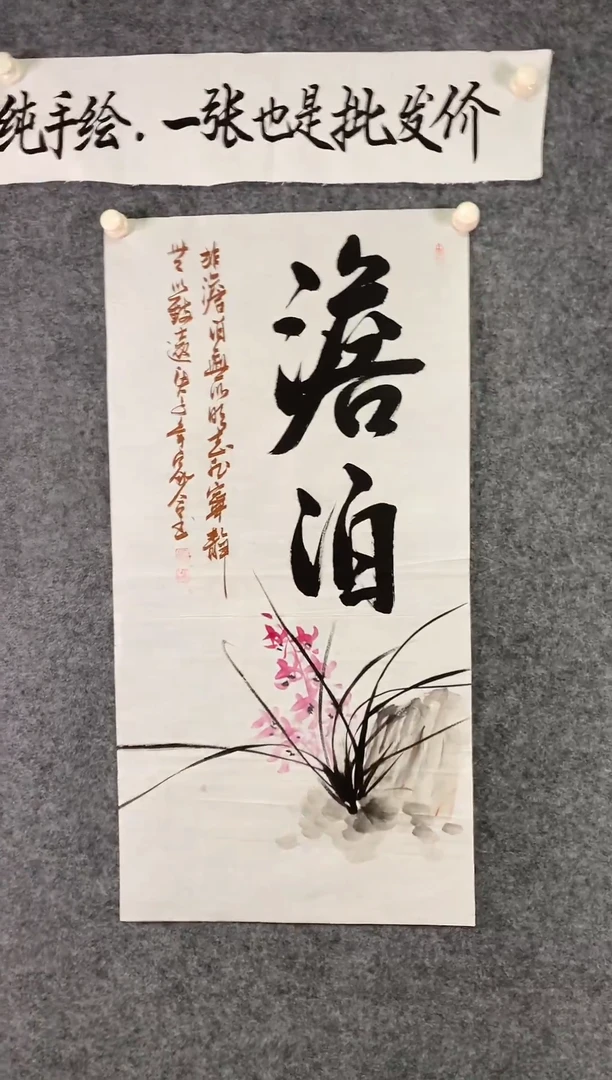 纯手绘.一张也是批发价
澹泊
非澹泊無以明志非寧静
無以致遠庚子年